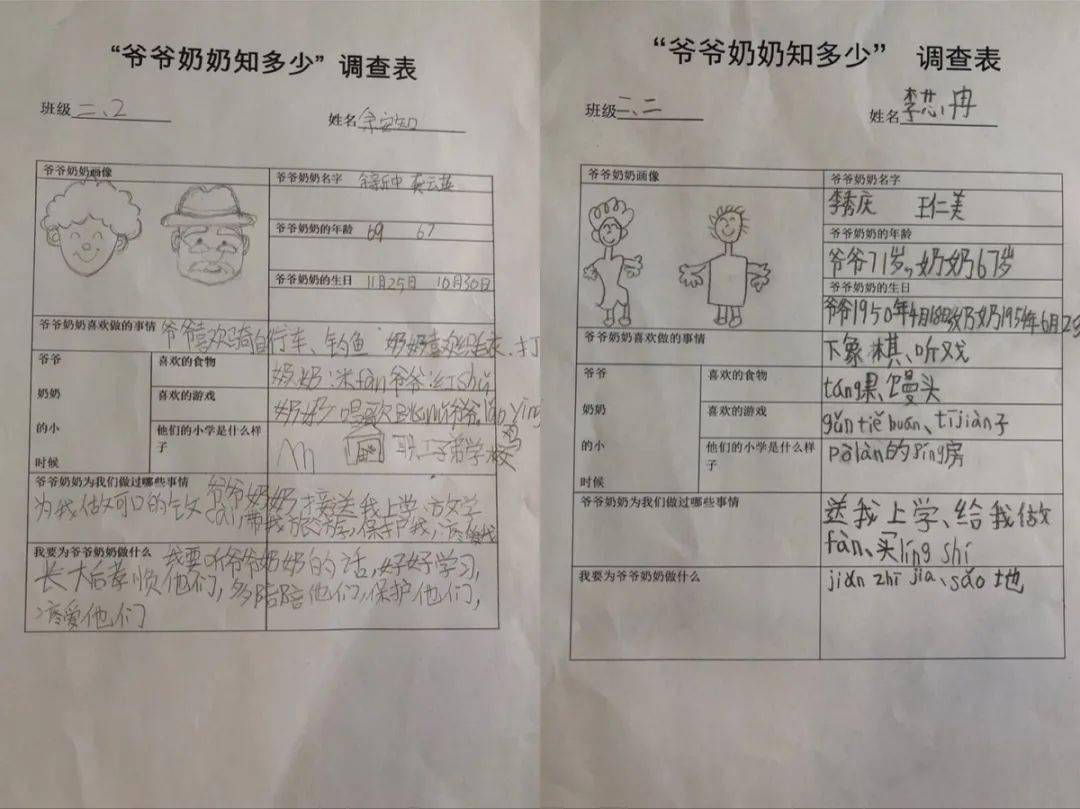 “爷爷奶奶知多少”调查表
班级 二、2 姓名 余安知
爷爷奶奶画像
爷爷奶奶名字
爷爷奶奶的年龄 69 67
爷爷奶奶的生日 11月25日 10月30日
爷爷奶奶喜欢做的事情 爷爷喜欢骑自行车、钓鱼 奶奶喜欢织毛衣、打
爷爷
奶奶
的小
时候
喜欢的食物 奶奶:米fàn爷爷:红shǔ
喜欢的游戏 奶奶 唱歌 爷爷
他们的小学是什么样子 职工子弟学校
爷爷奶奶为我们做过哪些事情 爷爷奶奶接送我上学、放学
为我做可口的饭cài,带我旅游,保护我,疼爱我
我要为爷爷奶奶做什么 我要听爷爷奶奶的话,好好学习,
长大后孝顺他们,多陪陪他们,保护他们,
疼爱他们
“爷爷奶奶知多少” 调查表
班级 二、二 姓名 李芯冉
爷爷奶奶画像
爷爷奶奶名字
李秀庆 王仁美
爷爷奶奶的年龄
爷爷71岁,奶奶67岁
爷爷奶奶的生日
爷爷1950年4月18日奶奶1954年6月23
爷爷奶奶喜欢做的事情
下象棋、听戏
爷爷
奶奶
的小
时候
喜欢的食物
táng果、馒头
喜欢的游戏
gǔn tiě huán、tījiàn子
他们的小学是什么样子
pòlàn的píng房
爷爷奶奶为我们做过哪些事情
送我上学、给我做
fàn、买líng shí
我要为爷爷奶奶做什么
jiǎn zhī jia、sǎo地